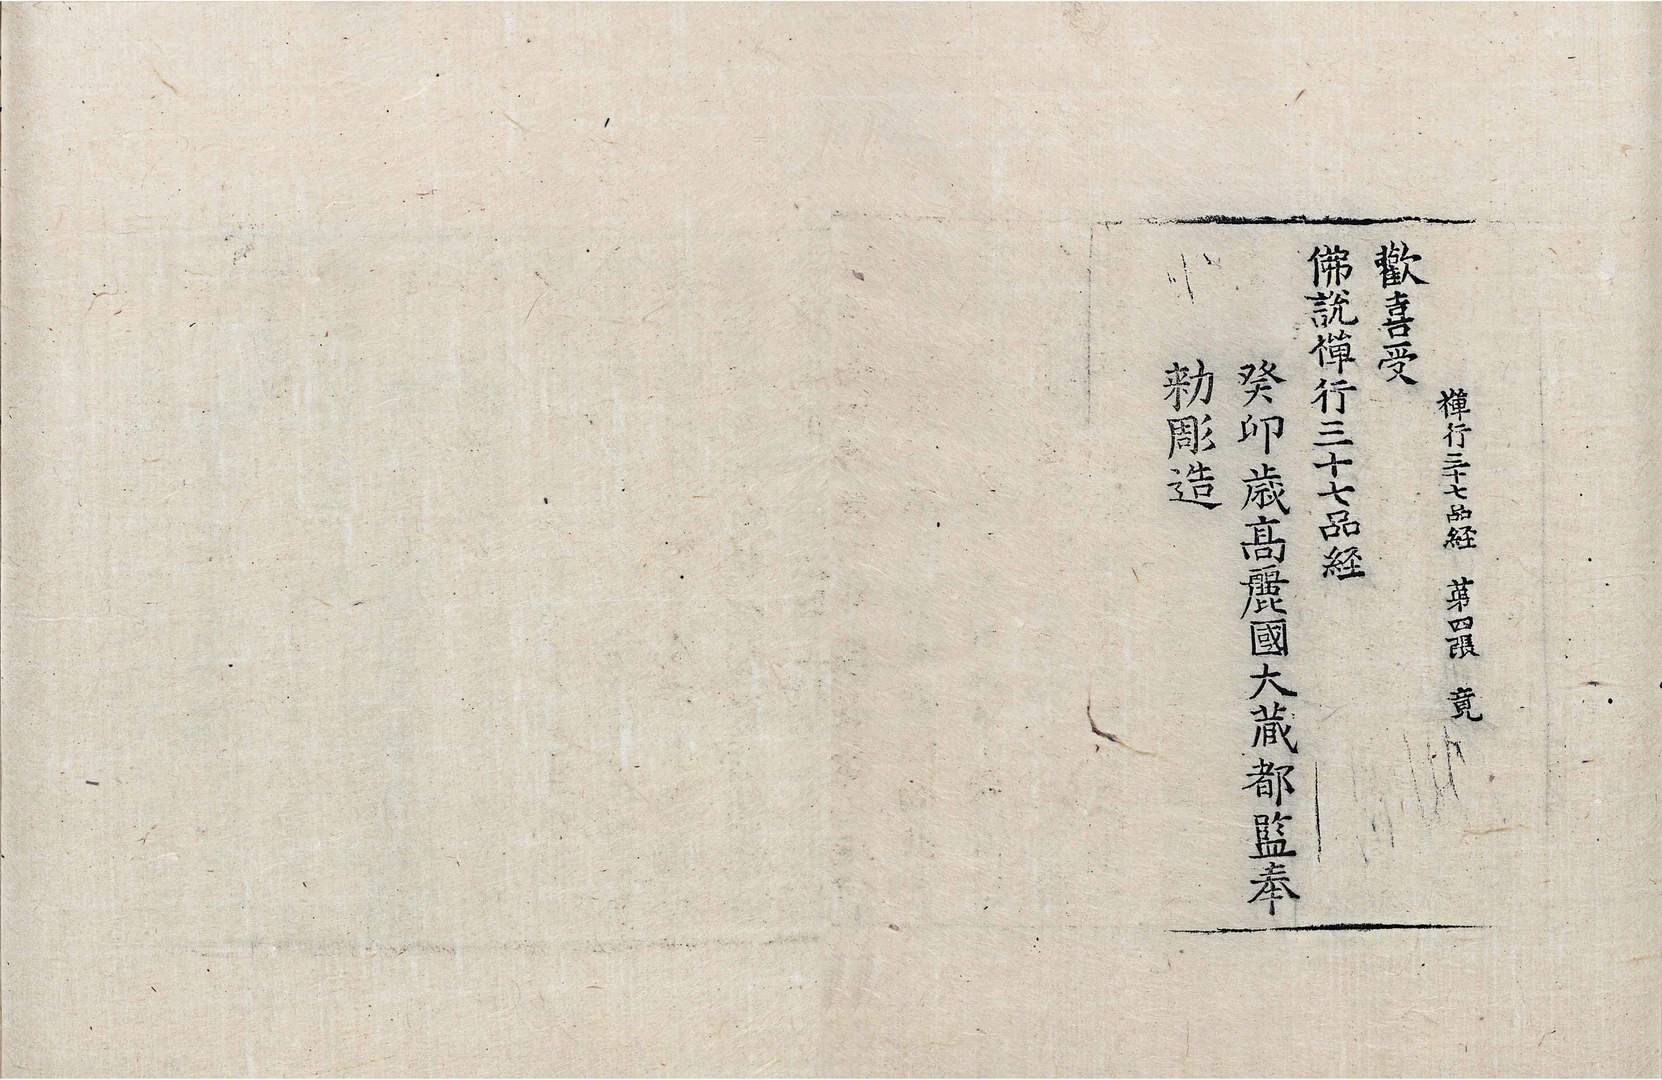 禪行三十七品経 苐四張 竟
歡喜受
佛說禪行三十七品経
癸卯歳髙麗國大蔵都監奉
勑彫造